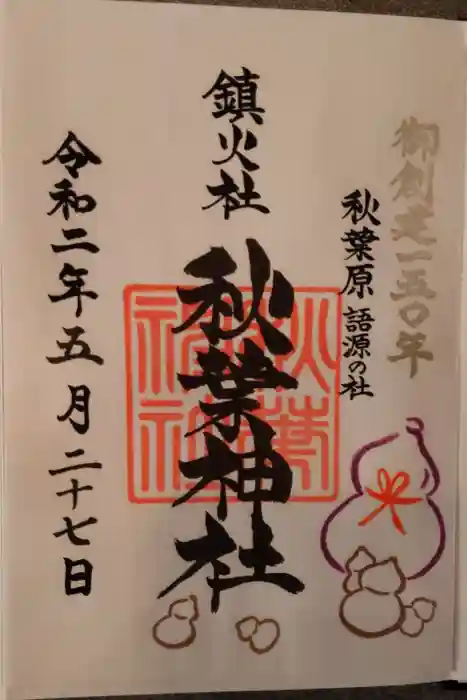 御創建一五〇年
秋葉原 語源の社
鎮火社
秋葉神社
秋葉神社
令和二年五月二十七日